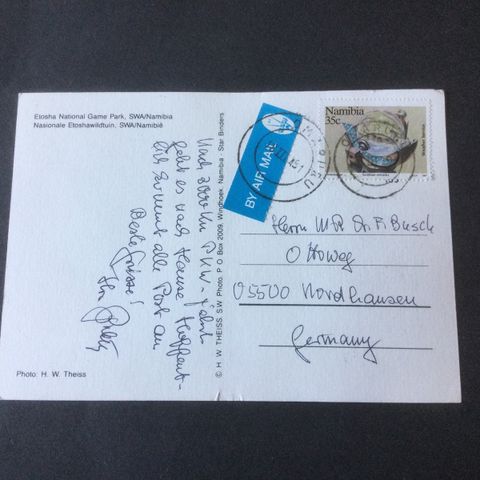 Etosha National Game Park, SWA/Namibia
Nasionale Etoshawildtuin, SWA/Namibië
Nach 3000 km PKW-Fahrt
geht es nach Hause. Hoffent-
lich kommt alle Post an
Beste Grüsse!
Ihr
Photo: H. W. Theiss
© H. W. THEISS. S.W. Photo. P. O. Box 2009. Windhoek. Namibia - Star Binders
BY AIR MAIL
Namibia
35c
Herrn MR Dr. F. Busch
Ottoweg
05500 Nordhausen
Germany